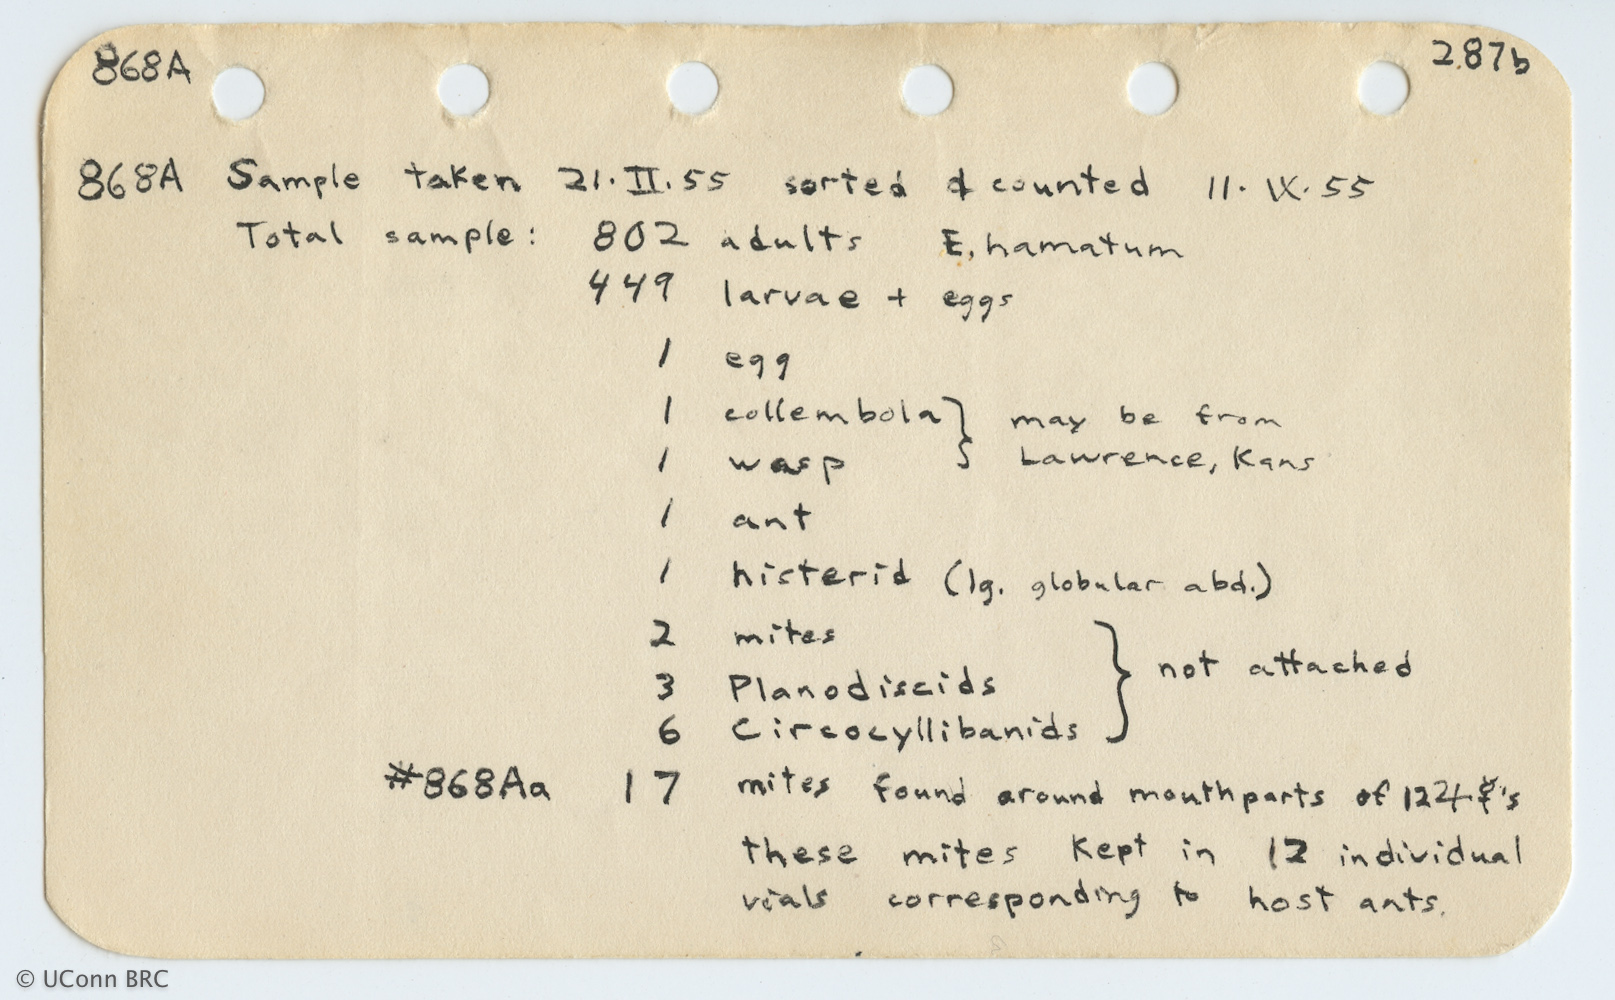 868A
287b
868A Sample taken 21.II.55 sorted & counted 11.IX.55
Total sample: 802 adults E. hamatum
449 larvae + eggs
1 egg
1 collembola } may be from
1 wasp Lawrence, Kans
1 ant
1 histerid (lg. globular abd.)
2 mites
3 Planodiscids } not attached
6 Circocyllibanids
#868Aa 17 mites found around mouthparts of 12
these mites kept in 12 individual
vials corresponding to host ants.
© UConn BRC